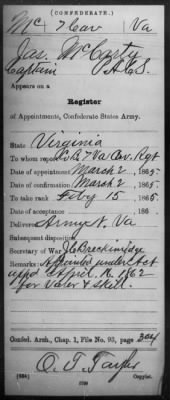 (CONFEDERATE.)
Mc 7 Cav Va
Jas. McCarty
Captain P.A.C.S.
Appears on a
Register
of Appointments, Confederate States Army.
State Virginia
To whom report 7 Va Cav. Rgt
Date of appointment March 2, 1865.
Date of confirmation March 2, 1865.
To take rank Feby 15 1865.
Date of acceptance 186 .
Delivered Army N. Va
Subsequent disposition
Secretary of War J. C. Breckinridge
Remarks: Appointed under Act
appd April 16 1862
for valor & skill.
Confed. Arch., Chap. 1, File No. 93, page 304
O. T. Taylor
(634) Copyist.